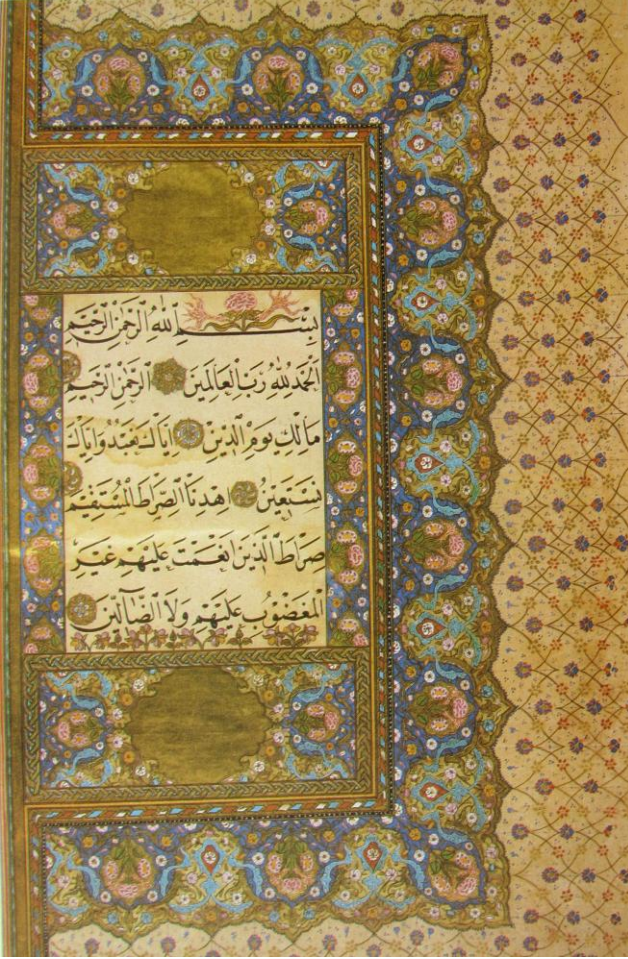 بِسْمِ اللهِ الرَّحْمٰنِ الرَّحِيْمِ
اَلْحَمْدُ لِلّٰهِ رَبِّ الْعَالَمِينَ الرَّحْمٰنِ الرَّحِيمِ
مَالِكِ يَوْمِ الدِّينِ اِيَّاكَ نَعْبُدُ وَاِيَّاكَ
نَسْتَعِينُ اِهْدِنَا الصِّرَاطَ الْمُسْتَقِيمَ
صِرَاطَ الَّذِينَ اَنْعَمْتَ عَلَيْهِمْ غَيْرِ
الْمَغْضُوبِ عَلَيْهِمْ وَلَا الضَّٓالِّينَ